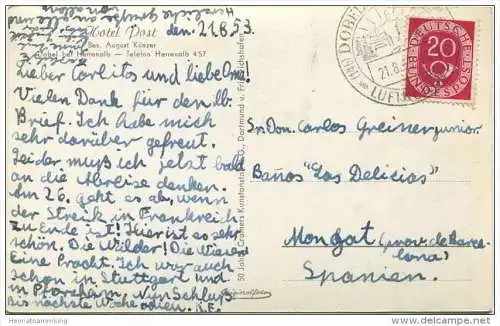 Hotel Post
den. 21.8.53.
Bes. August Künzer
Dobel bei Herrenalb — Telefon Herrenalb 457
Lieber Carlitos und liebe Oma!
Vielen Dank für den lb.
Brief. Ich habe mich
sehr darüber gefreut.
Leider muß ich jetzt bald
an die Abreise denken.
Am 26. geht es ab, wenn
der Streik in Frankreich
zu Ende ist! Hier ist es sehr
schön. Die Wälder! Die Wiesen!
Eine Pracht. Ich war auch
schon in Stuttgart und
in Pforzheim. Nun Schluß
Bis nächste Woche adieu. K.F.
50 Jahre Gramers Kunstanstalt Dortmund u.
Originalfoto
DOBEL
21.8.
LUFTK
DEUTSCHE BUNDESPOST
20
Sr. Don. Carlos Greiner junior
Baños "Las Delicias"
Mongat (prov. de Barce-
lona)
Spanien.
Heimatsammlung.de